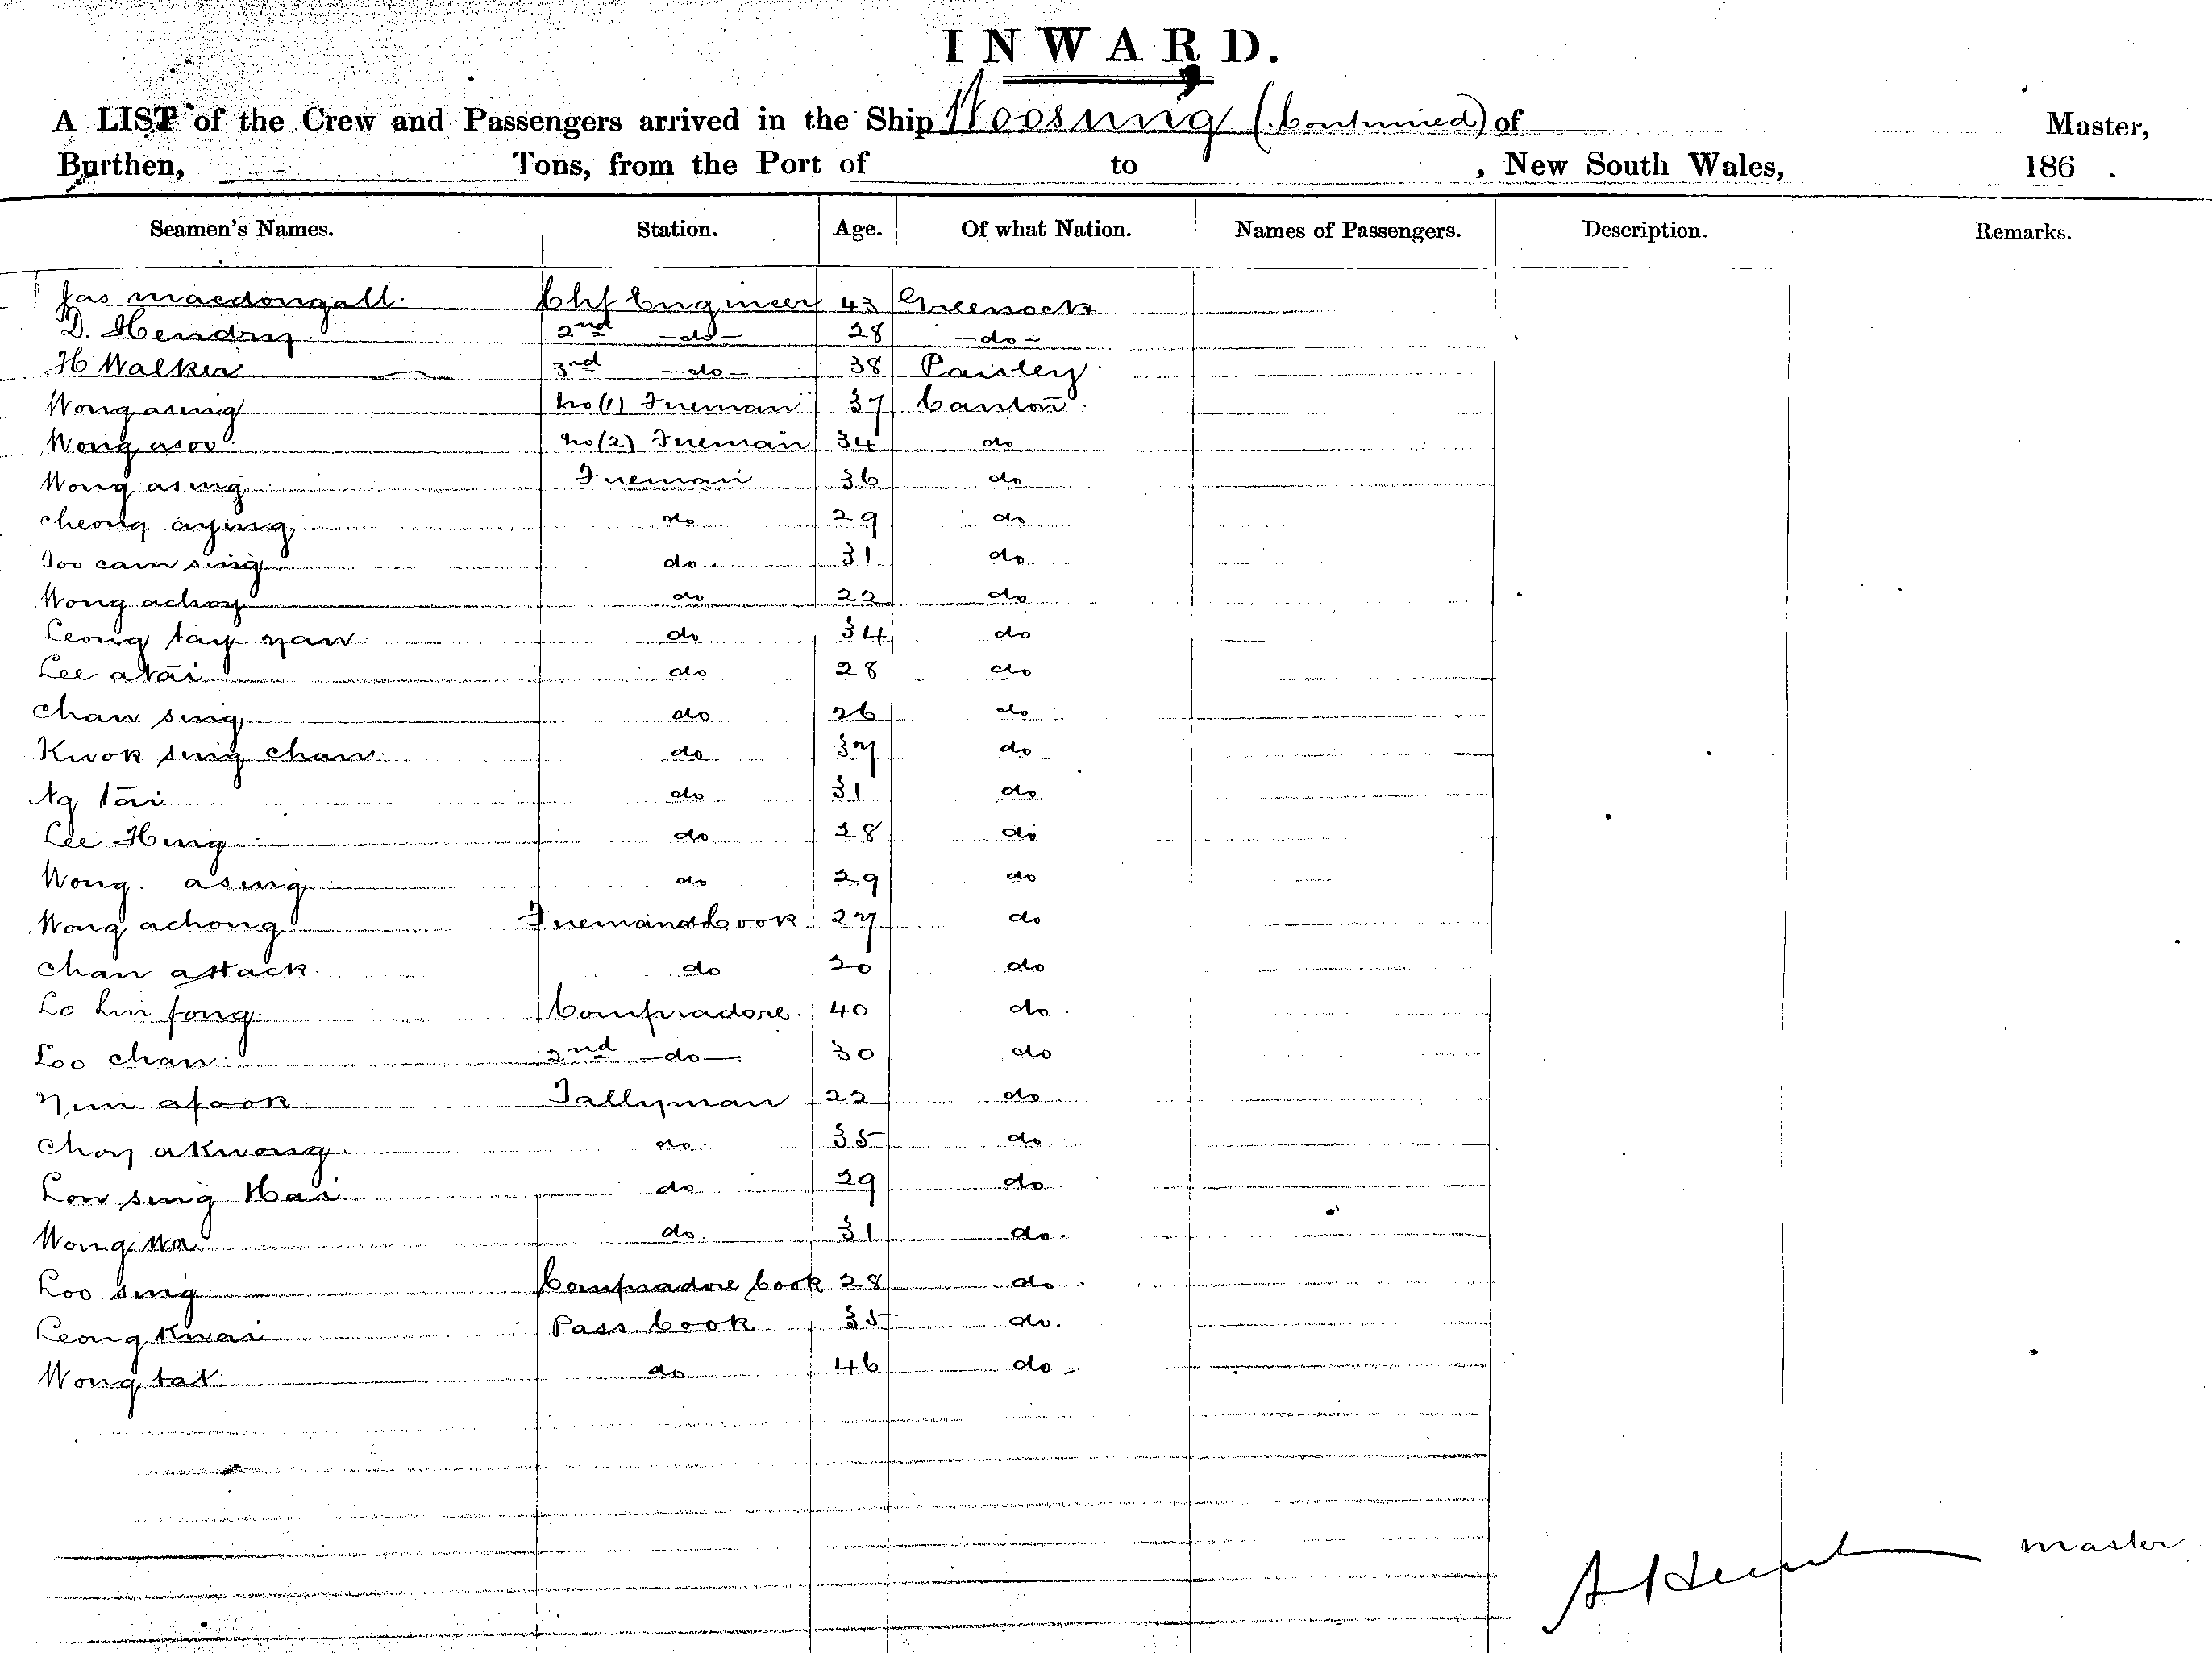 INWARD.
A LIST of the Crew and Passengers arrived in the Ship Woosung (Continued) of Master,
Burthen, Tons, from the Port of to , New South Wales, 186 .
Seamen's Names. Station. Age. Of what Nation. Names of Passengers. Description. Remarks.
Jas macdongall. Chf Engineer 43 Greenock
D. Hendry 2nd -do- 28 -do-
H Walker 3rd -do- 38 Paisley
Wong asing no (1) Fireman 37 Canton.
Wong asov no (2) Fireman 34 do
Wong asing Fireman 36 do
cheong aying do 29 do
Too cam sing do 31 do
Wong achoy do 22 do
Leong tay yaw do 34 do
Lee atai do 28 do
chaw sing do 26 do
Kwok sing chaw do 37 do
Ng tai do 31 do
Lee Hing do 28 do
Wong. asing do 29 do
Wong achong Firemans Cook 27 do
chaw attack do 20 do
Lo Lin fong Compradore. 40 do
Loo chaw 2nd -do- 30 do
afook Tallyman 22 do
Choy akwong do 35 do
Low sing Hai do 29 do
Wong Wa do 31 do
Loo sing Compradore Cook 28 do
Leong Kwai Pass Cook 35 do.
Wong tat do 46 do
master